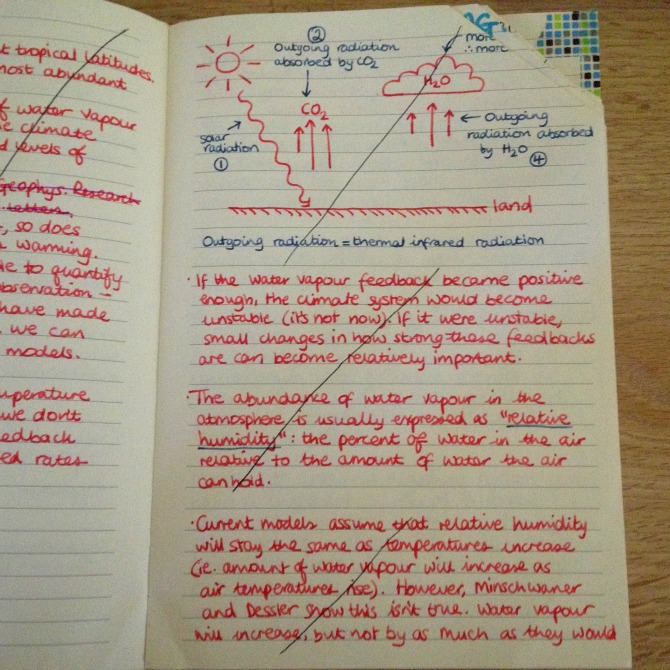 t tropical latitudes.
most abundant
of water vapour
e climate
d levels of
Geophys. Research
Letters.
, so does
warming.
le to quantify
bservation –
have made
we can
models.
mperature
we don't
edback
ed rates
more
∴ more
②
Outgoing radiation
absorbed by CO2
H2O
CO2
solar
radiation
①
← Outgoing
radiation absorbed
by H2O
④
land
Outgoing radiation = thermal infrared radiation
· If the water vapour feedback became positive
enough, the climate system would become
unstable (it's not now). If it were unstable,
small changes in how strong these feedbacks
are can become relatively important.
· The abundance of water vapour in the
atmosphere is usually expressed as "relative
humidity": the percent of water in the air
relative to the amount of water the air
can hold.
· Current models assume that relative humidity
will stay the same as temperatures increase
(ie. amount of water vapour will increase as
air temperatures rise). However, Minschwaner
and Dessler show this isn't true. Water vapour
will increase, but not by as much as they would